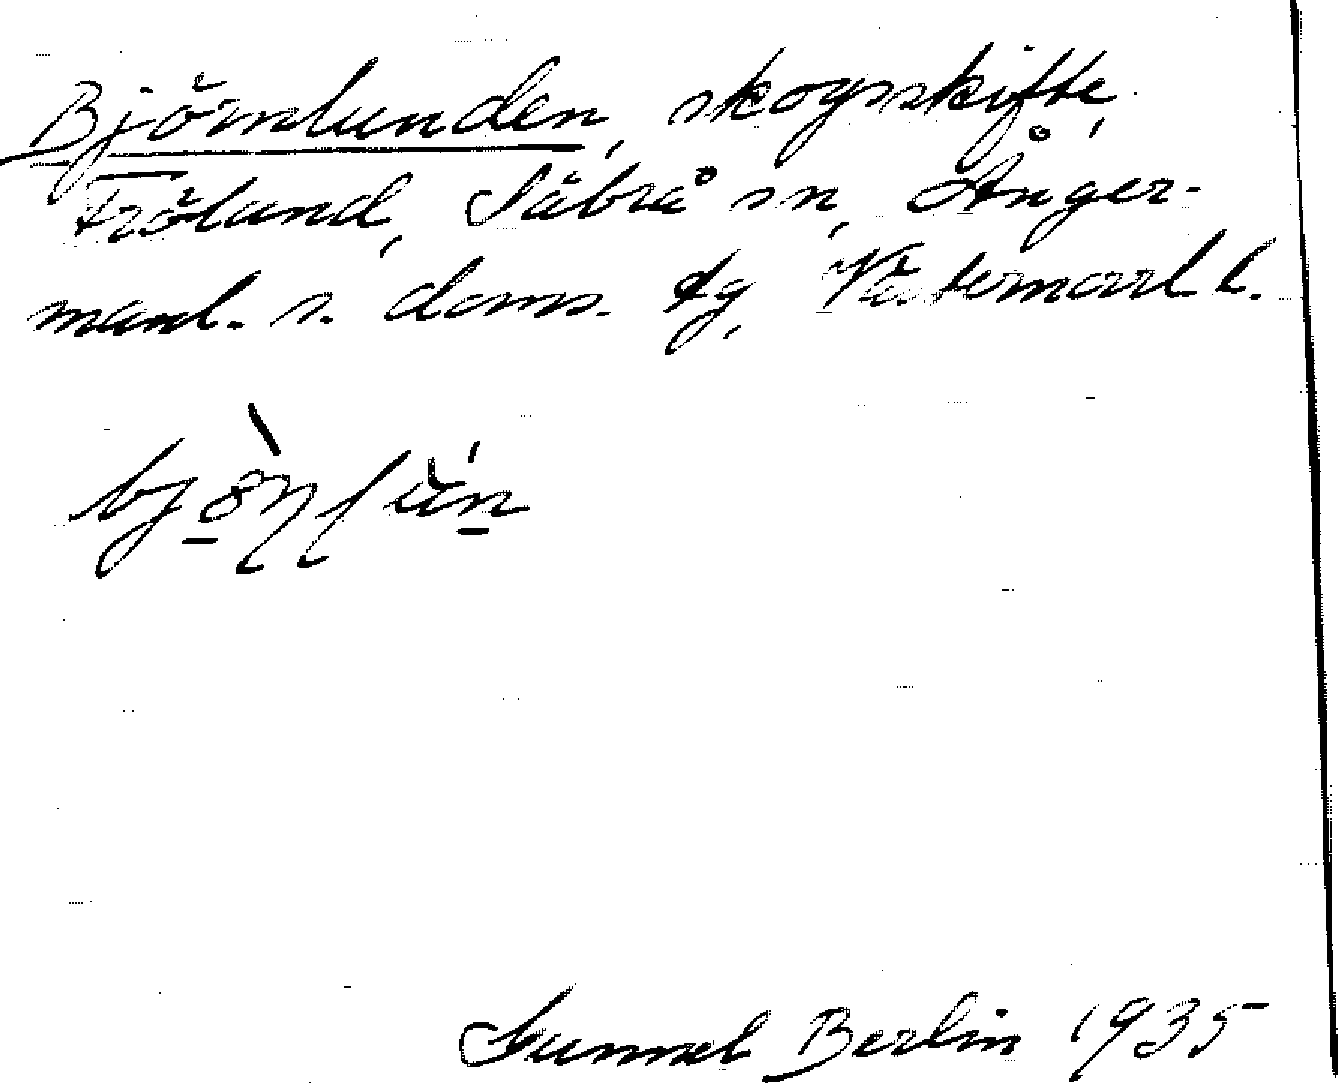 Björnlunden, skogsskifte,
Fröland, Säbrå sn, Ånger-
manl. s. doms. tg, Västernorrl l.
Gunnel Berlin 1935